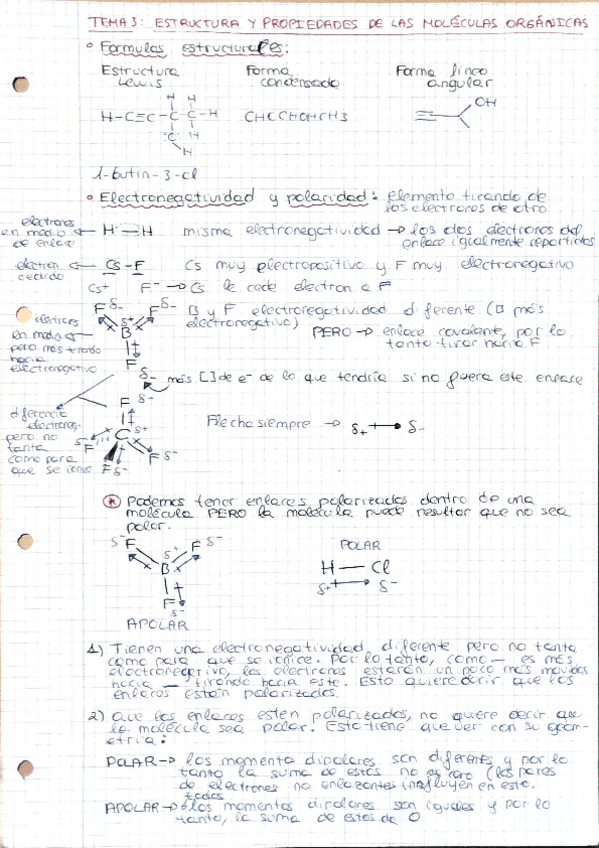 TEMA 3: ESTRUCTURA Y PROPIEDADES DE LAS MOLÉCULAS ORGÁNICAS
° Formulas estructurales:
Estructura Lewis
Forma condensada
Forma lineo angular
H H
H-C≡C-C-C-H
:O: H
H
CHCCHOHCH3
OH
1-butin-3-ol
° Electronegatividad y polaridad: elemento tirando de
los electrones de otro
electrones en medio de enlace ← H··H
misma electronegatividad → los dos electrones del
enlace igualmente repartidos
electron cedido ← Cs-F
Cs muy electropositivo y F muy electronegativo
Cs+ F⁻ → Cs le cede electron a F
F δ- F δ-
δ+
B
F
δ-
B y F electronegatividad diferente (B más
electronegativo)
PERO → enlace covalente, por lo
tanto tirar hacia F
electrones
en medio
pero más tirado
hacia
electronegativo
más [] de e⁻ de lo que tendría si no fuera este enlace
diferencia
electroneg.
pero no
tanta
como para
que se ionice
F δ-
C δ+
δ- F
F δ-
F δ-
Flecha siempre → δ+ → δ-
* Podemos tener enlaces polarizados dentro de una
molécula PERO la molécula puede resultar que no sea
polar.
δ- F F δ-
δ+
B
F δ-
APOLAR
POLAR
H — Cl
δ+ → δ-
1) Tienen una electronegatividad diferente pero no tanta
como para que se ionice. Por lo tanto, como — es más
electronegativo, los electrones estarán un poco más movidos
hacia — tirando hacia este. Esto quiere decir que los
enlaces estén polarizados.
2) Que los enlaces esten polarizados, no quiere decir que
la molécula sea polar. Esto tiene que ver con su geom-
etria:
POLAR → los momento dipolares son diferentes y por lo
tanto la suma de estos no es cero (los pares
de electrones no enlazantes influyen en esto.
todos
APOLAR → los momentos dipolares son iguales y por lo
tanto, la suma de estos da 0